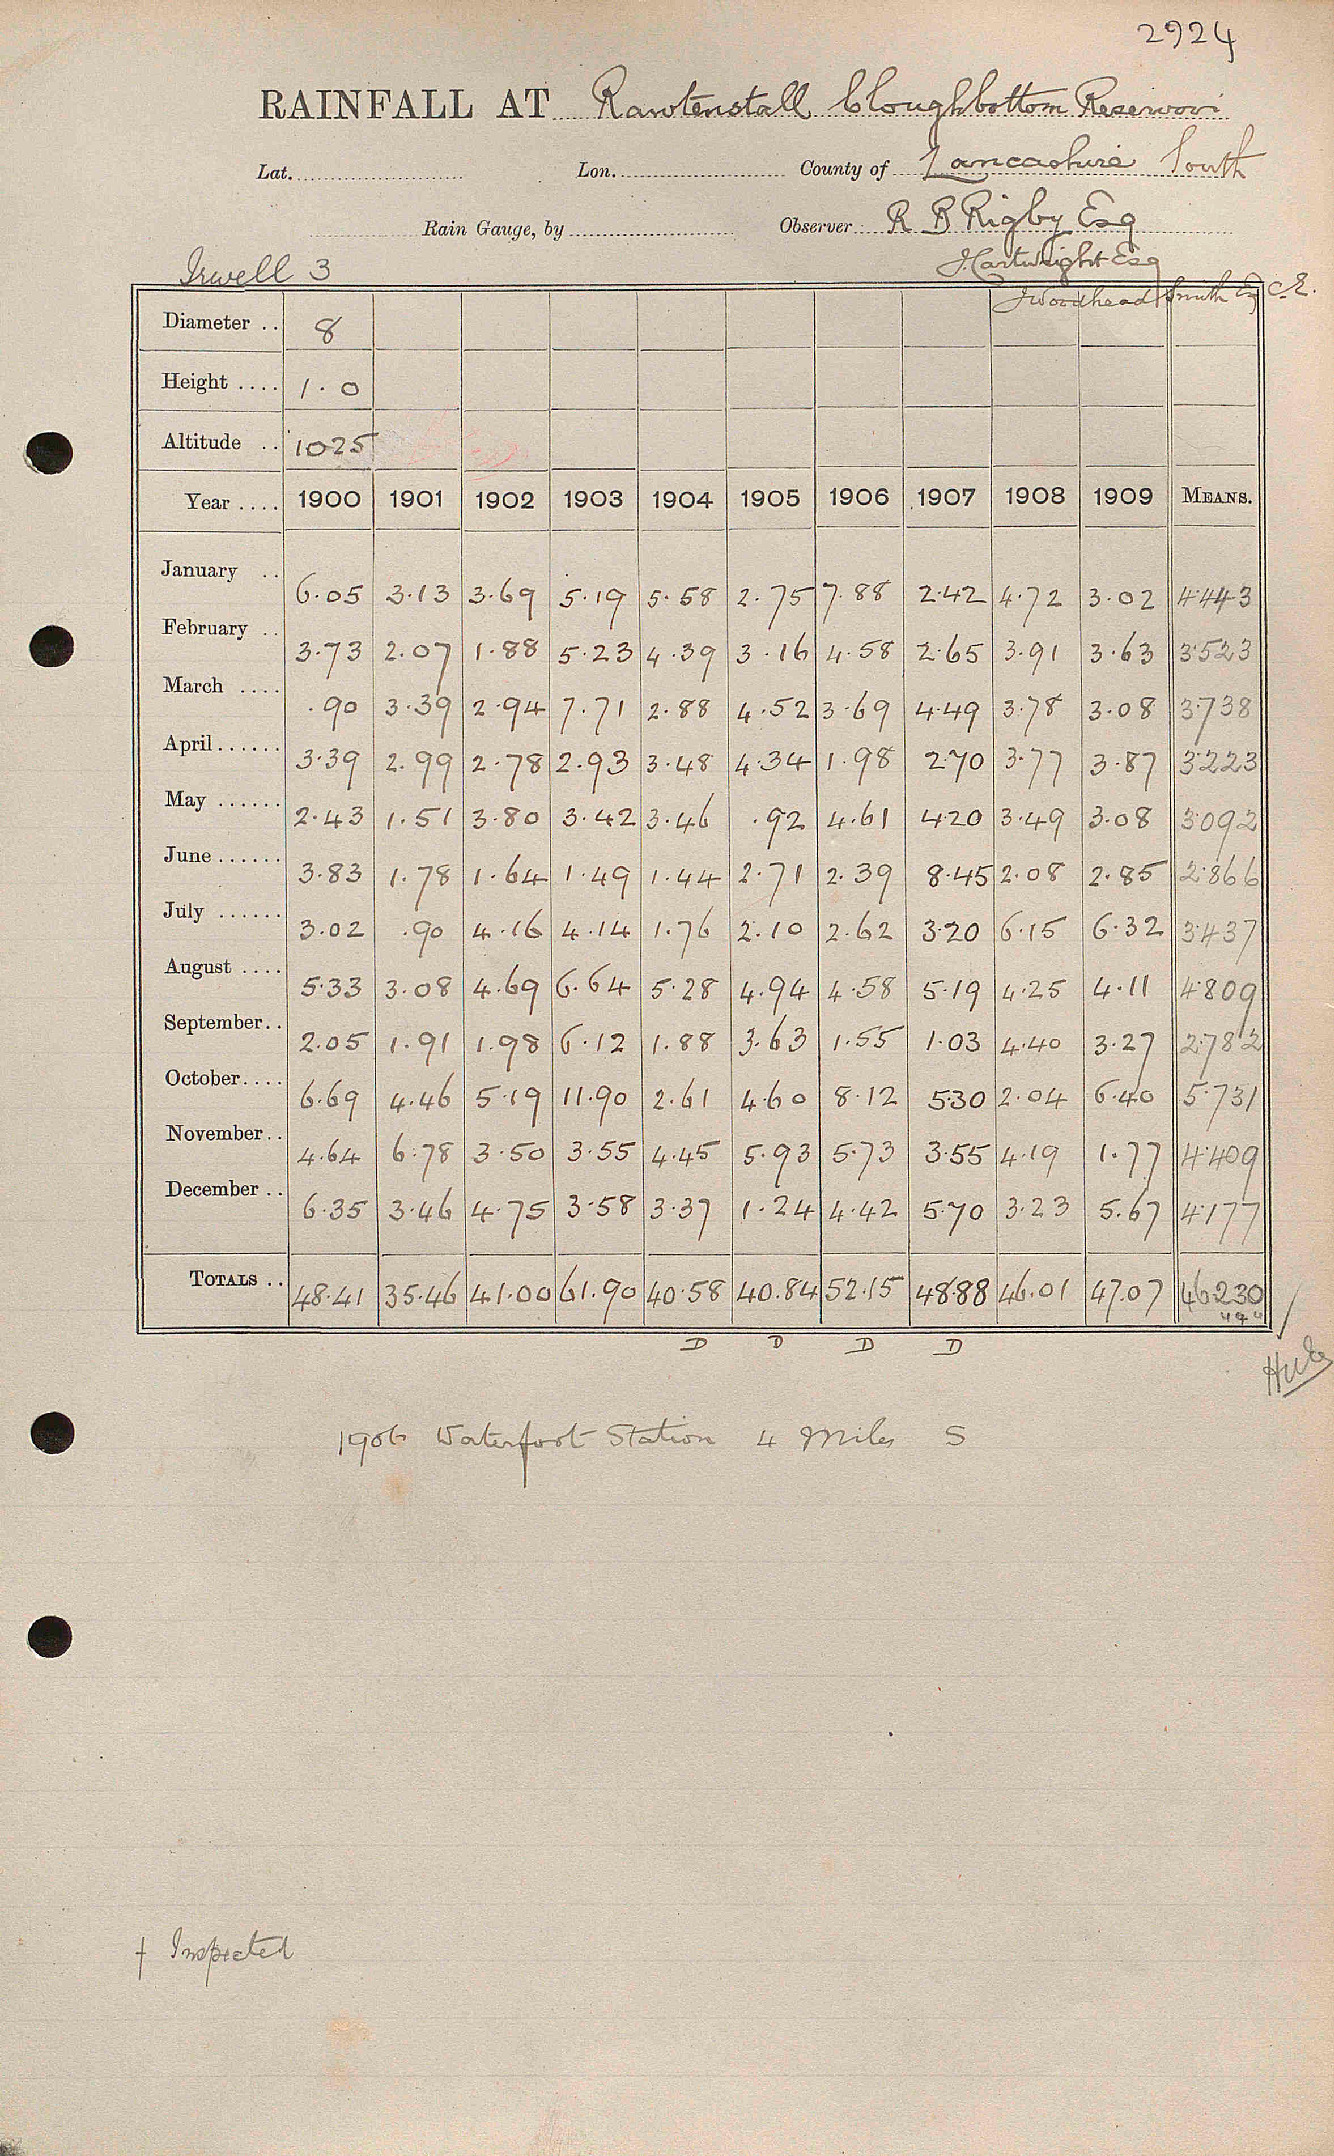 2924
RAINFALL AT Rawtenstall Cloughbottom Reservoir
Lat. Lon. County of Lancashire South
Rain Gauge, by Observer R B Rigby Esq
Irwell 3 J. Cartwright Esq
J Woodhead Smith Esq C.E.
Diameter .. 8
Height .... 1.0
Altitude .. 1025
Year .... 1900 1901 1902 1903 1904 1905 1906 1907 1908 1909 MEANS.
January .. 6.05 3.13 3.69 5.19 5.58 2.75 7.88 2.42 4.72 3.02 4.443
February .. 3.73 2.07 1.88 5.23 4.39 3.16 4.58 2.65 3.91 3.63 3.523
March .... .90 3.39 2.94 7.71 2.88 4.52 3.69 4.49 3.78 3.08 3.738
April ...... 3.39 2.99 2.78 2.93 3.48 4.34 1.98 2.70 3.77 3.87 3.223
May ...... 2.43 1.51 3.80 3.42 3.46 .92 4.61 4.20 3.49 3.08 3.092
June ...... 3.83 1.78 1.64 1.49 1.44 2.71 2.39 8.45 2.08 2.85 2.866
July ...... 3.02 .90 4.16 4.14 1.76 2.10 2.62 3.20 6.15 6.32 3.437
August .... 5.33 3.08 4.69 6.64 5.28 4.94 4.58 5.19 4.25 4.11 4.809
September .. 2.05 1.91 1.98 6.12 1.88 3.63 1.55 1.03 4.40 3.27 2.782
October .... 6.69 4.46 5.19 11.90 2.61 4.60 8.12 5.30 2.04 6.40 5.731
November .. 4.64 6.78 3.50 3.55 4.45 5.93 5.73 3.55 4.19 1.77 4.409
December .. 6.35 3.46 4.75 3.58 3.37 1.24 4.42 5.70 3.23 5.67 4.177
TOTALS .. 48.41 35.46 41.00 61.90 40.58 40.84 52.15 48.88 46.01 47.07 46.230
D D D D
1906 Waterfoot Station 4 Miles S
† Inspected